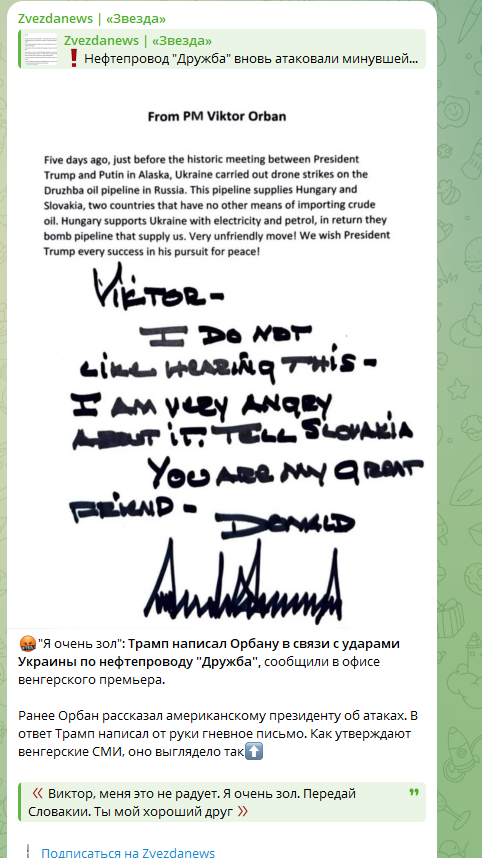 Zvezdanews | «Звезда»
Zvezdanews | «Звезда»
❗ Нефтепровод "Дружба" вновь атаковали минувшей...
From PM Viktor Orban
Five days ago, just before the historic meeting between President
Trump and Putin in Alaska, Ukraine carried out drone strikes on the
Druzhba oil pipeline in Russia. This pipeline supplies Hungary and
Slovakia, two countries that have no other means of importing crude
oil. Hungary supports Ukraine with electricity and petrol, in return they
bomb pipeline that supply us. Very unfriendly move! We wish President
Trump every success in his pursuit for peace!
VIKTOR-
I DO NOT
LIKE HEARING THIS -
I AM VERY ANGRY
ABOUT IT. TELL SLOVAKIA
YOU ARE MY GREAT
FRIEND - DONALD
🤬"Я очень зол": Трамп написал Орбану в связи с ударами
Украины по нефтепроводу "Дружба", сообщили в офисе
венгерского премьера.
Ранее Орбан рассказал американскому президенту об атаках. В
ответ Трамп написал от руки гневное письмо. Как утверждают
венгерские СМИ, оно выглядело так⬆️
« Виктор, меня это не радует. Я очень зол. Передай
Словакии. Ты мой хороший друг »
Подписаться на Zvezdanews